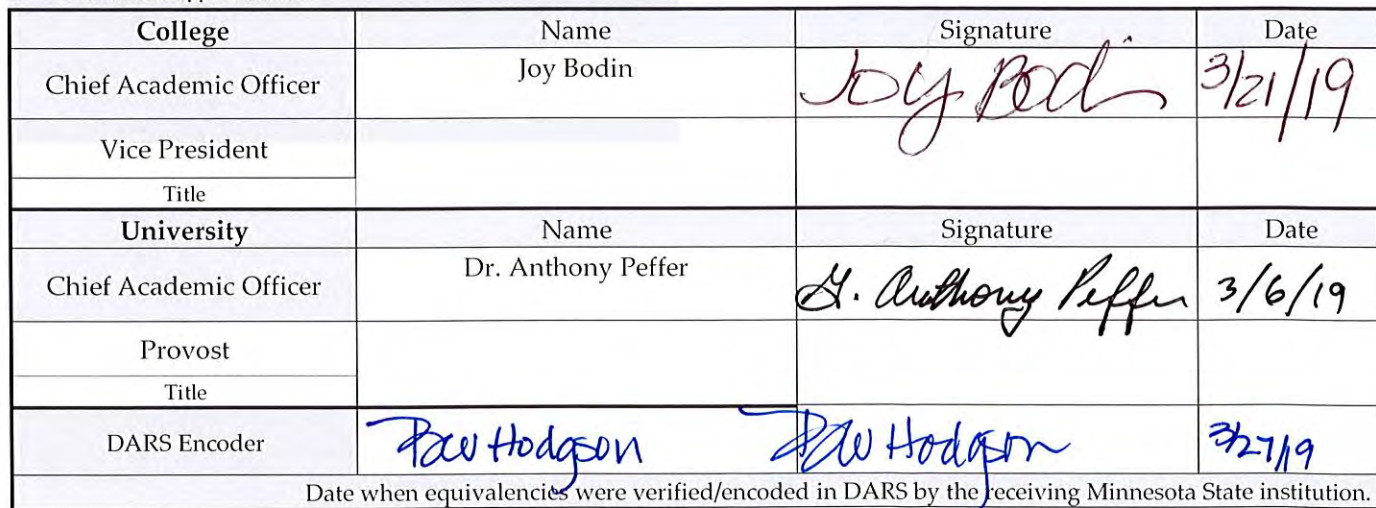 College Name Signature Date
Chief Academic Officer Joy Bodin Joy Bodin 3/21/19
Vice President
Title
University Name Signature Date
Chief Academic Officer Dr. Anthony Peffer G. Anthony Peffer 3/6/19
Provost
Title
DARS Encoder Hodgson Hodgson 3/27/19
Date when equivalencies were verified/encoded in DARS by the receiving Minnesota State institution.